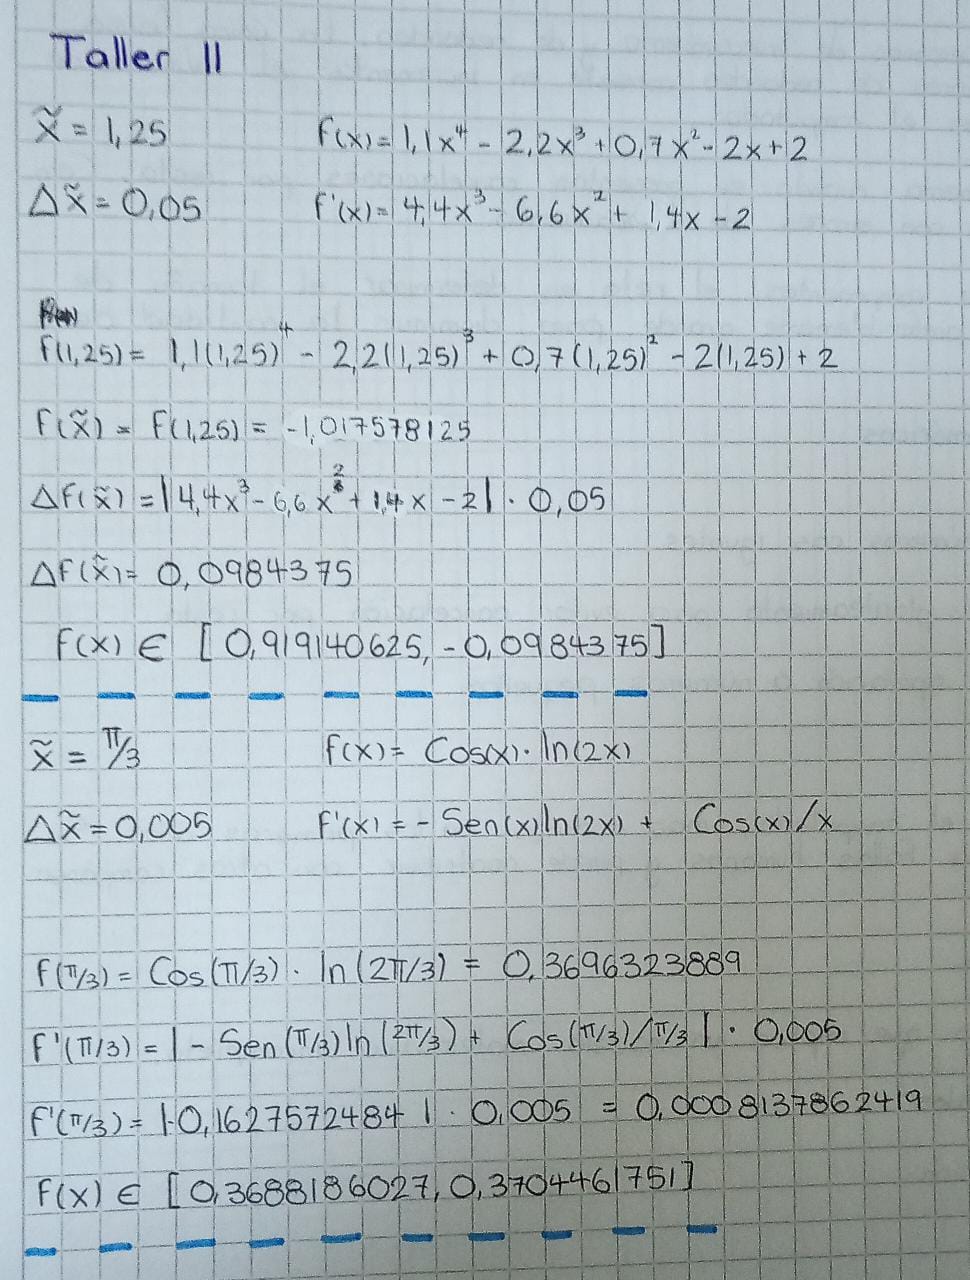 Taller II
x̃ = 1,25 f(x) = 1,1x⁴ - 2,2x³ + 0,7x² - 2x + 2
Δx̃ = 0,05 f'(x) = 4,4x³ - 6,6x² + 1,4x - 2
f(1,25) = 1,1(1,25)⁴ - 2,2(1,25)³ + 0,7(1,25)² - 2(1,25) + 2
f(x̃) = f(1,25) = -1,017578125
Δf(x̃) = |4,4x³ - 6,6x² + 1,4x - 2| · 0,05
Δf(x̃) = 0,0984375
f(x) ∈ [0,919140625, -0,0984375]
x̃ = π/3 f(x) = Cos(x) · ln(2x)
Δx̃ = 0,005 f'(x) = - Sen(x)ln(2x) + Cos(x)/x
f(π/3) = Cos(π/3) · ln(2π/3) = 0,3696323889
f'(π/3) = |- Sen(π/3)ln(2π/3) + Cos(π/3)/π/3| · 0,005
f'(π/3) = |-0,1627572484| · 0,005 = 0,0008137862419
f(x) ∈ [0,3688186027, 0,3704461751]